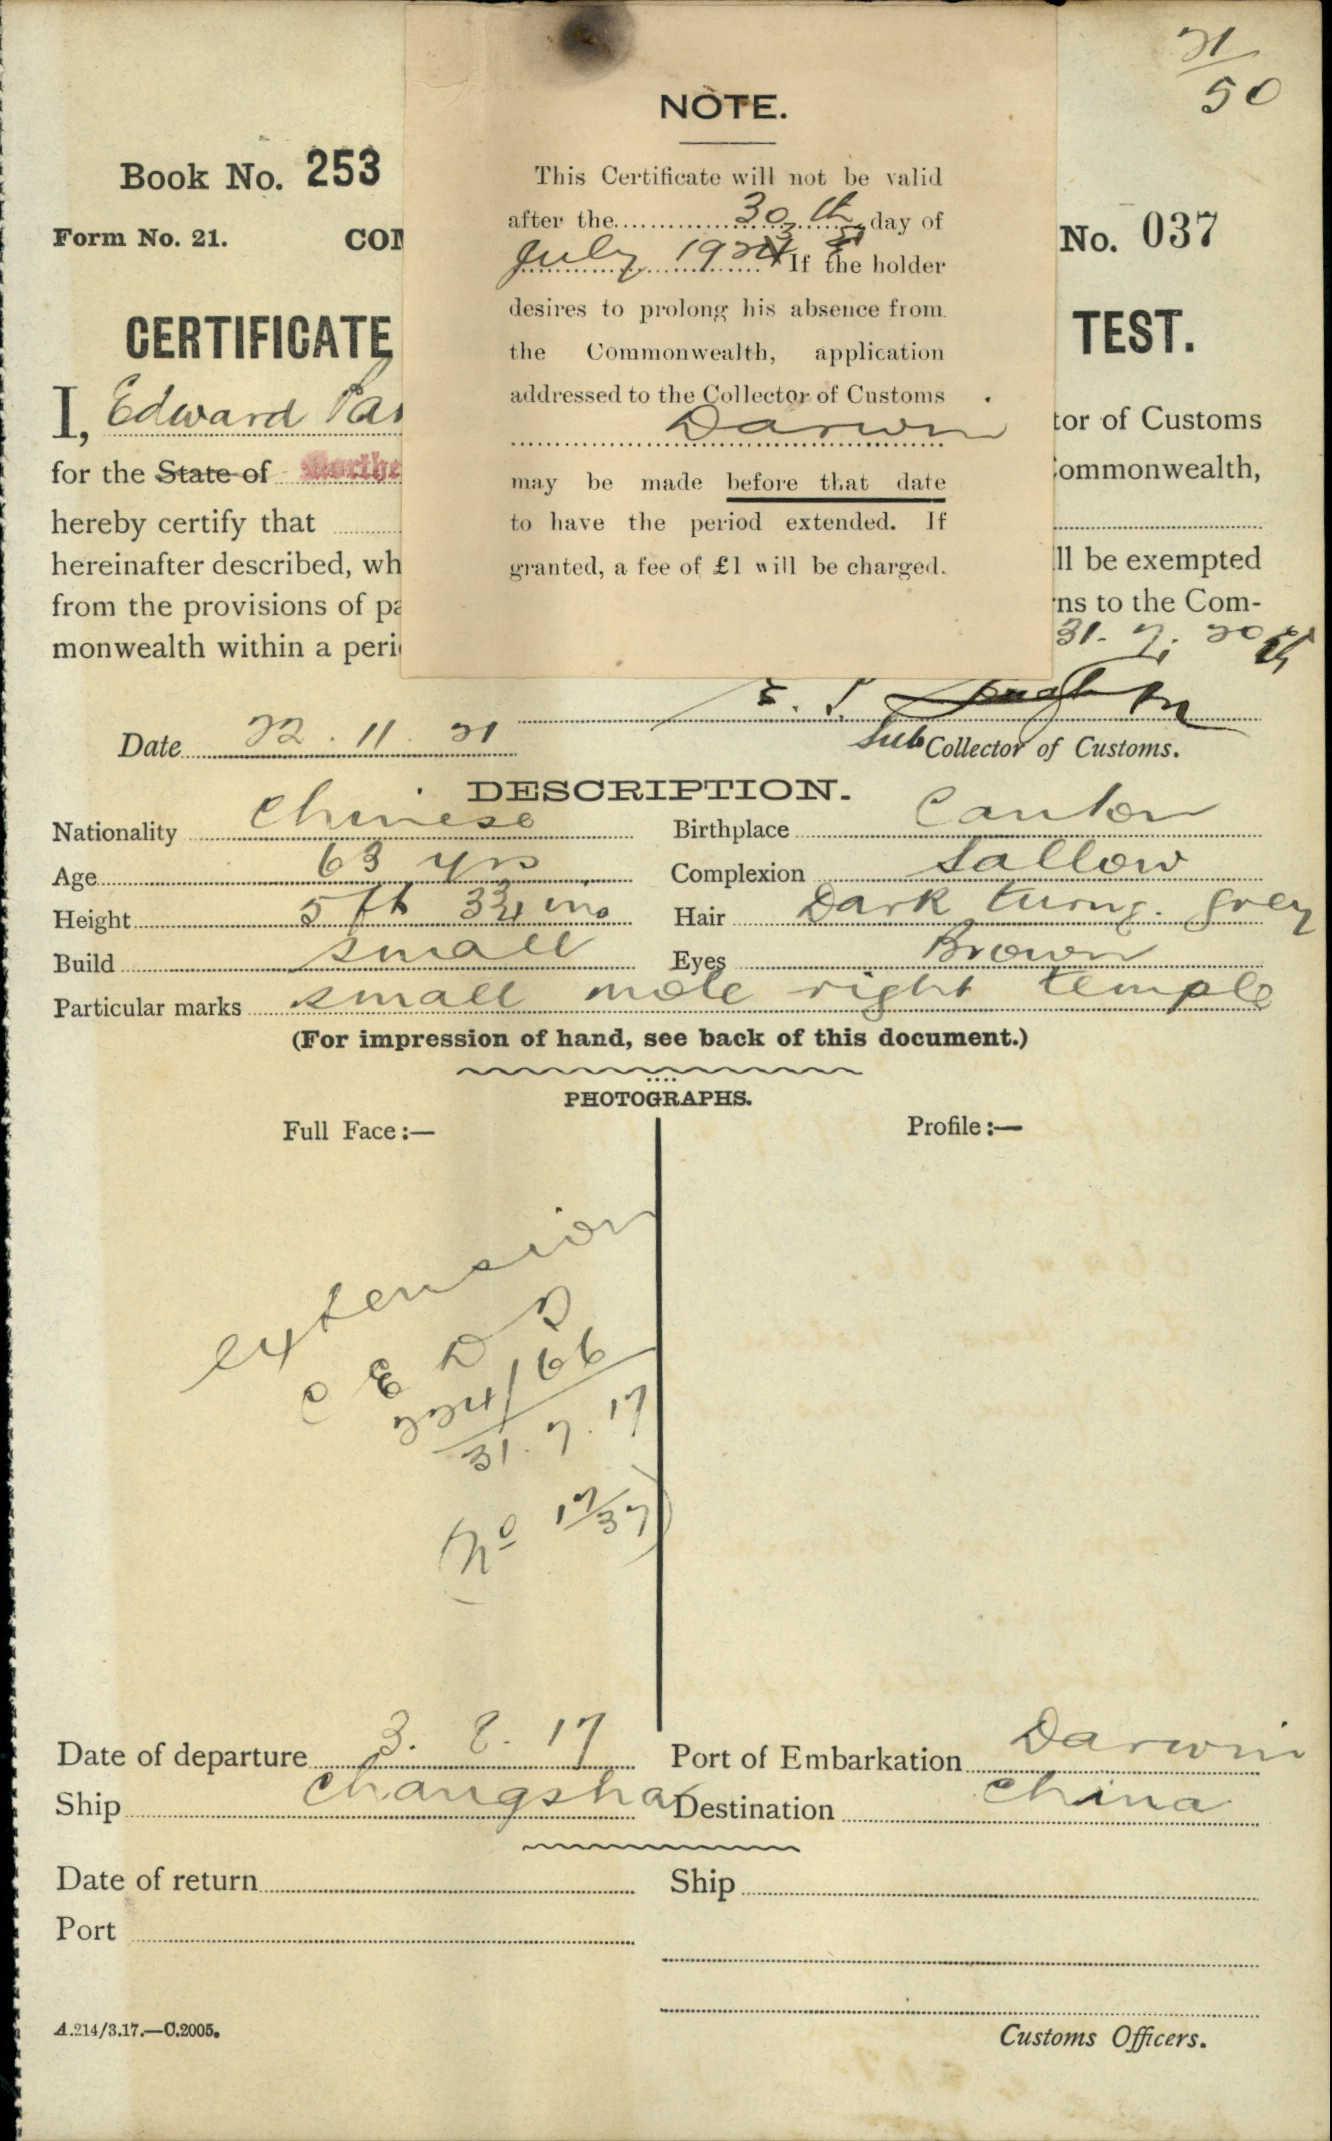 21/50
NOTE.
This Certificate will not be valid
after the 30th day of
July 192 If the holder
desires to prolong his absence from
the Commonwealth, application
addressed to the Collector of Customs
Darwin
may be made before that date
to have the period extended. If
granted, a fee of £1 will be charged.
Book No. 253
Form No. 21. COM No. 037
CERTIFICATE TEST.
I, Edward tor of Customs
for the State of Northe ommonwealth,
hereby certify that
hereinafter described, wh ll be exempted
from the provisions of pa ns to the Com-
monwealth within a peri 31. 7. 20
Date 22. 11. 21
Sub Collector of Customs.
DESCRIPTION.
Nationality Chinese Birthplace Canton
Age 63 yrs Complexion Sallow
Height 5 ft 3 3/4 ins Hair Dark turng. grey
Build small Eyes Brown
Particular marks small mole right temple
(For impression of hand, see back of this document.)
PHOTOGRAPHS.
Full Face:— Profile:—
extension
C E D T
224/66
31. 7. 17
(No 17/37)
Date of departure 3. 8. 17 Port of Embarkation Darwin
Ship Changsha Destination China
Date of return Ship
Port
A.214/3.17.—C.2005.
Customs Officers.